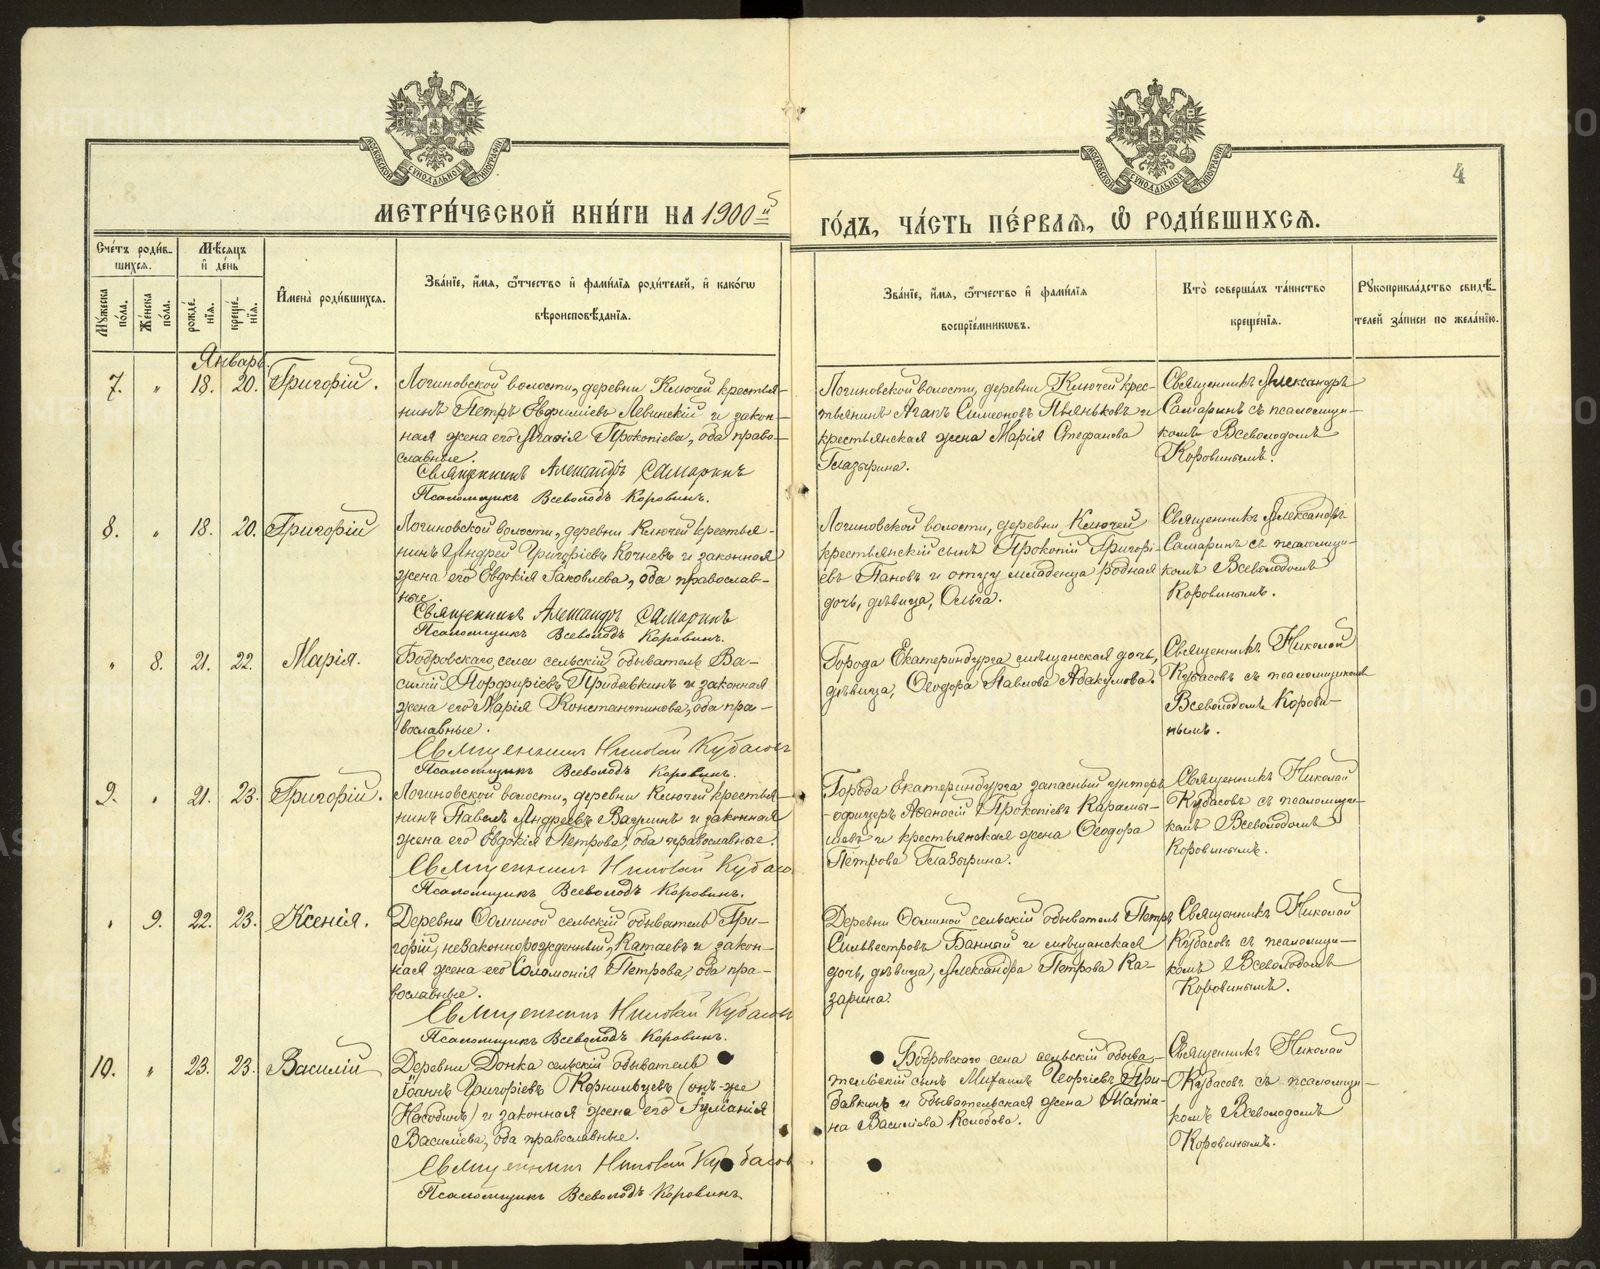 МОСКОВСКОЙ СѴНОДАЛЬНОЙ ТИПОГРАФІИ
МОСКОВСКОЙ СѴНОДАЛЬНОЙ ТИПОГРАФІИ
4
МЕТРИ́ЧЕСКОЙ КНИ́ГИ НА 1900й
ГО́ДЪ, ЧА́СТЬ ПЕ́РВАѦ, Ѿ РОДИ́ВШИХСѦ.
Сче́тъ роди́вшихсѧ.
Мꙋ́жеска по́ла.
Же́нска по́ла.
Мѣ́сѧцъ и҆ де́нь
рожде́нїѧ.
креще́нїѧ.
И҆мена̀ роди́вшихсѧ.
Зва́нїе, и҆́мѧ, ѻ҆́тчество и҆ фами́лїѧ роди́телей, и҆ како́гѡ
вѣроисповѣ́данїѧ.
Зва́нїе, и҆́мѧ, ѻ҆́тчество и҆ фами́лїѧ
воспрїе́мникѡвъ.
Кто̀ соверша́лъ та́инство
креще́нїѧ.
Рꙋкоприкла́дство свидѣ́телей за́писи по жела́нїю.
Январь
7. " 18. 20. Григорій.
Логиновской волости, деревни Ключей крестья-
нинъ Петръ Евфиміевъ Левинскій и закон-
ная жена его Агаѳія Прокопіева, оба право-
славные.
Священникъ Александръ Самаринъ
Псаломщикъ Всеволодъ Коровинъ.
Логиновской волости, деревни Ключей крес-
тьянинъ Агапъ Симеоновъ Пьяньковъ и
крестьянская жена Марія Стефанова
Глазырина.
Священникъ Александръ
Самаринъ съ псаломщи-
комъ Всеволодомъ
Коровинымъ.
8. " 18. 20. Григорій
Логиновской волости, деревни Ключей крестья-
нинъ Андрей Григоріевъ Кочневъ и законная
жена его Евдокія Іаковлева, оба православ-
ные.
Священникъ Александръ Самаринъ
Псаломщикъ Всеволодъ Коровинъ.
Логиновской волости, деревни Ключей
крестьянскій сынъ Прокопій Григорі-
евъ Пановъ и отцу младенца родная
дочь, дѣвица, Ольга.
Священникъ Александръ
Самаринъ съ псаломщи-
комъ Всеволодомъ
Коровинымъ.
" 8. 21. 22. Марія.
Бобровскаго села сельскій обыватель Ва-
силій Порфиріевъ Прибавкинъ и законная
жена его Марія Константинова, оба пра-
вославные.
Священникъ Николай Кубасовъ
Псаломщикъ Всеволодъ Коровинъ.
Города Екатеринбурга мѣщанская дочь,
дѣвица, Ѳеодора Павлова Абакумова.
Священникъ Николай
Кубасовъ съ псаломщикомъ
Всеволодомъ Корови-
нымъ.
9. " 21. 23. Григорій.
Логиновской волости, деревни Ключей крестья-
нинъ Павелъ Андреевъ Вагинъ и законная
жена его Евдокія Петрова, оба православные.
Священникъ Николай Кубасо
Псаломщикъ Всеволодъ Коровинъ.
Города Екатеринбурга запасный унтеръ
-офицеръ Аѳанасій Прокопіевъ Карамы-
шевъ и крестьянская жена Ѳеодора
Петрова Глазырина.
Священникъ Николай
Кубасовъ съ псаломщи-
комъ Всеволодомъ
Коровинымъ.
" 9. 22. 23. Ксенія.
Деревни Осминой сельскій обыватель Гри-
горій, незаконнорожденный, Катаевъ и закон-
ная жена его Соломонія Петрова, оба пра-
вославные.
Священникъ Николай Кубасовъ
Псаломщикъ Всеволодъ Коровинъ.
Деревни Осминой сельскій обыватель Петръ
Сильвестровъ Банный и мѣщанская
дочь, дѣвица, Александра Петрова Ка-
зарина.
Священникъ Николай
Кубасовъ съ псаломщи-
комъ Всеволодомъ
Коровинымъ.
10. " 23. 23. Василій
Деревни Донка сельскій обыватель
Іоаннъ Григоріевъ Корнильцевъ (онъ-же
Насобинъ) и законная жена его Іуліанія
Василіева, оба православные.
Священникъ Николай Кубасовъ
Псаломщикъ Всеволодъ Коровинъ
Бобровскаго села сельскій обыва-
тельскій сынъ Михаилъ Георгіевъ При-
бавкинъ и обывательская жена Татіа-
на Василіева Колобова.
Священникъ Николай
Кубасовъ съ псаломщи-
комъ Всеволодомъ
Коровинымъ.